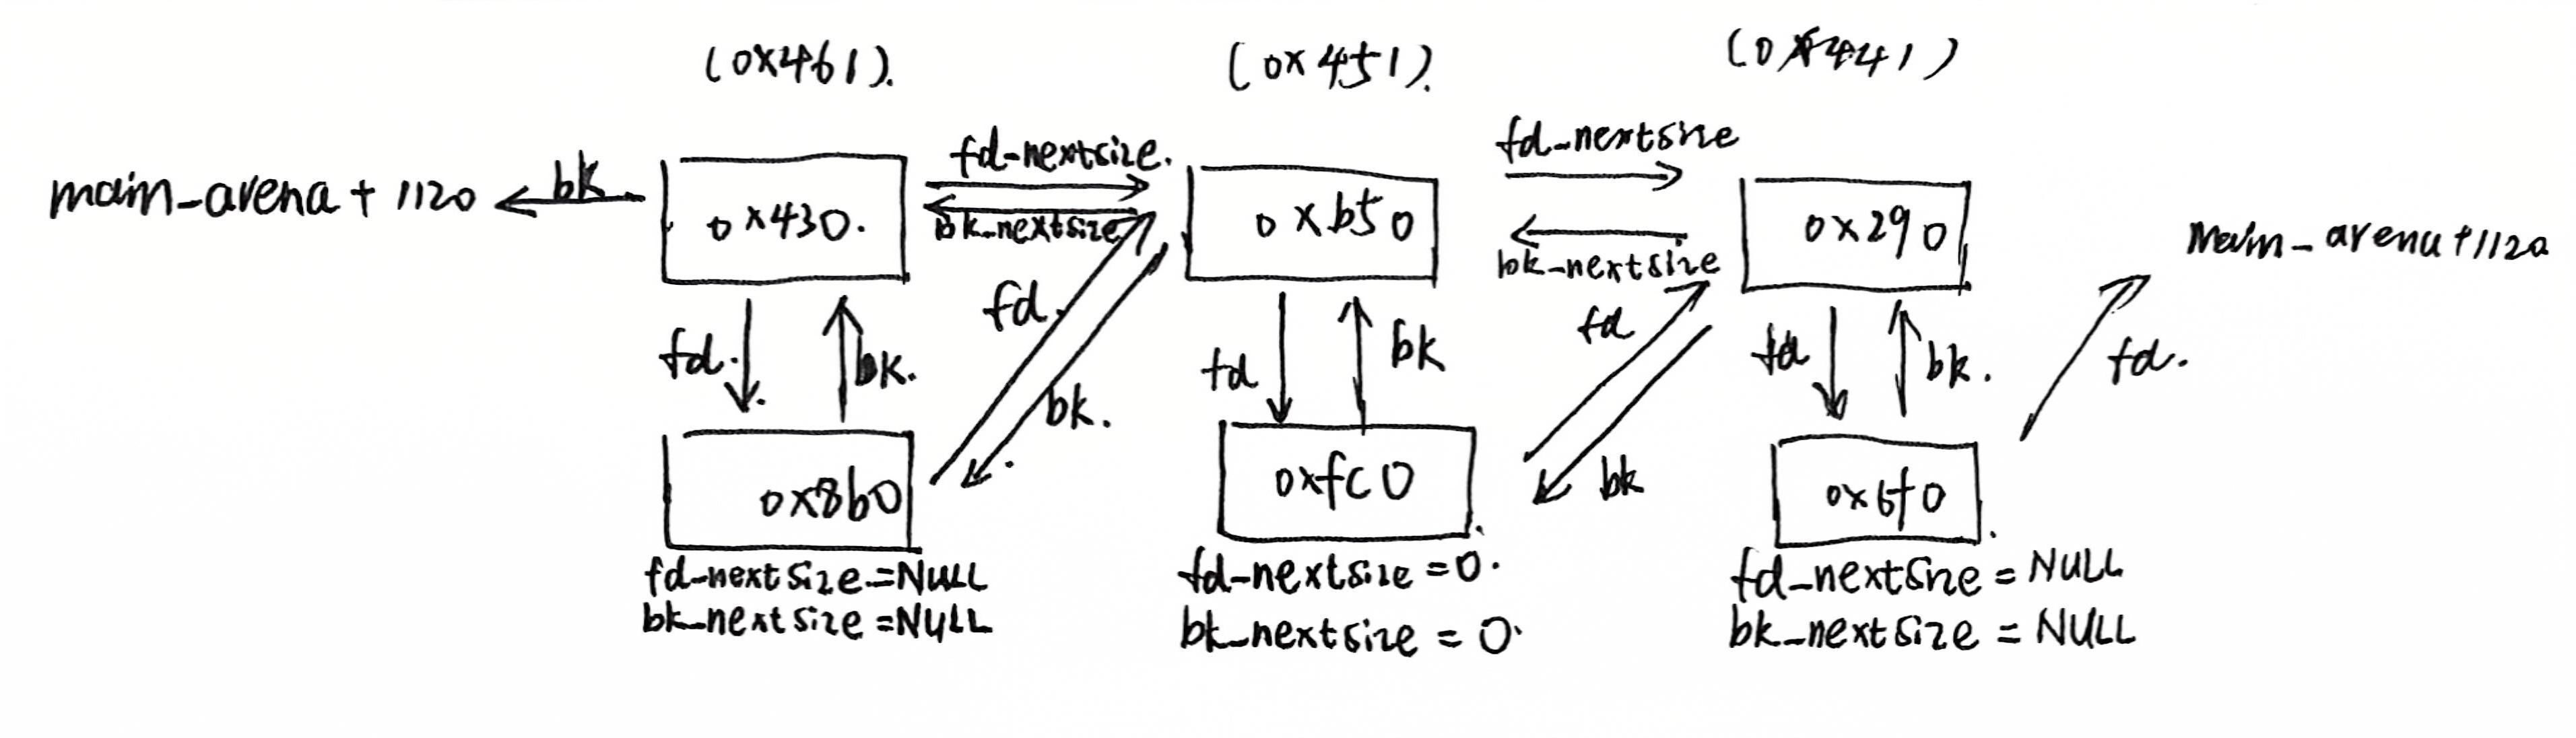 (0x461).
(0x451).
(0x441)
main_arena + 1120
bk
0x430.
fd-nextsize.
bk-nextsize
0xb50
fd_nextsize
bk_nextsize
0x290
main_arena+1120
fd.
bk.
fd.
bk.
fd
bk
fd
bk
fd
bk.
fd.
0x8b0
0xfc0
0x6f0
fd-nextsize.=NULL
bk_nextsize =NULL
fd-nextsize =0.
bk_nextsize = 0.
fd_nextsize = NULL
bk_nextsize = NULL